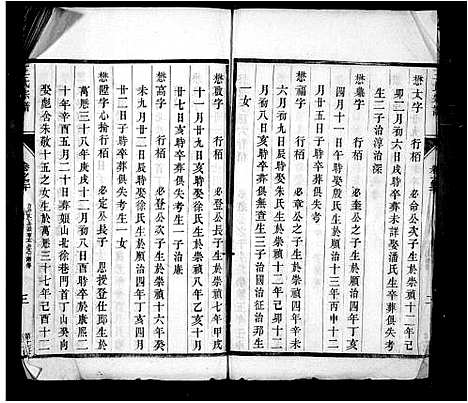 懋太字　行栢　必命公次子生於崇禎十二年己
卯二月初六日亥時卒葬未詳娶潘氏生卒葬俱失考
生二子治淳治深
懋彝字　行栢　必奎公之子生於順治四年丁亥
四月十一日子時娶殷氏生於順治十三年丙申十二
月　日　時卒葬俱失考
懋福字　行栢　必章公之子生於崇禎十二年己卯
六月初八日亥時娶朱氏生於崇禎十五年壬午十二
月初八日亥時卒葬俱無查生三子治國治征治邦生
一女
懋敬字　行栢　必登公長子生於崇禎七年甲戌
十一月廿九日亥時娶徐氏生於崇禎八年乙亥十一月
廿七日亥時卒葬俱失考生一子治康
懋高字　行栢　必登公次子生於崇禎十六年癸
未九月廿二日辰時娶徐氏生於順治四年丁亥四月
廿二日子時卒葬俱失考生一女
懋陞字心揄行栢　必定公長子　恩授登仕郎生於
萬應三十八年庚戌十二月初八日酉時卒於康熙二
十年辛酉五月二十日葬如山北徐巷門首丁山癸向
娶彪舍朱敬十五之女生於萬應三十七年己酉十二
王氏宗譜
卷之
三